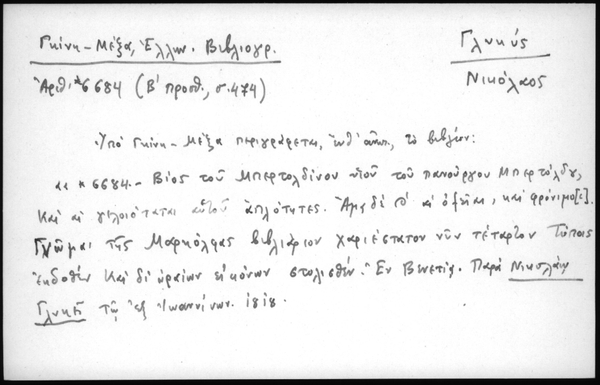 Γκίνη - Μέξα, Ἑλλην. Βιβλιογρ.
Γλυκύς
Νικόλαος
Ἀριθ. *6684 (Β' προσθ., σ. 474)
Ὑπό Γκίνη - Μέξα περιγράφεται, τὸ βιβλίον:
«*6684.- Βίος τοῦ Μπερτολδίνου υἱοῦ τοῦ πανούργου Μπερτόλδου,
καὶ αἱ γελοιόταται αὐτοῦ ἁπλότητες. Ἅμα δὲ καὶ αἱ ὀξεῖαι, καὶ φρόνιμο[ι].
Γνῶμαι τῆς Μαρκόλφας βιβλιάριον χαριέστατον νῦν τέταρτον Τύποις
ἐκδοθὲν καὶ δι' ὡραίων εἰκόνων στολισθέν. Ἐν Βενετίᾳ. Παρὰ Νικολάῳ
Γλυκεῖ τῷ ἐξ Ἰωαννίνων. 1818.